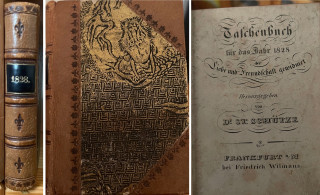 1828.
Taschenbuch
für das Jahr 1828
der
Liebe und Freundschaft gewidmet
Herausgegeben
von
Dr. St. Schütze
FRANKFURT a/M
bei Friedrich Wilmans